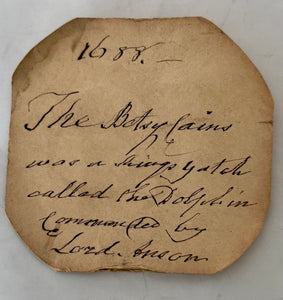 1688.—
The Betsy Cains
was a Kings Yatch
called the Dolphin
Commanded by
Lord Anson